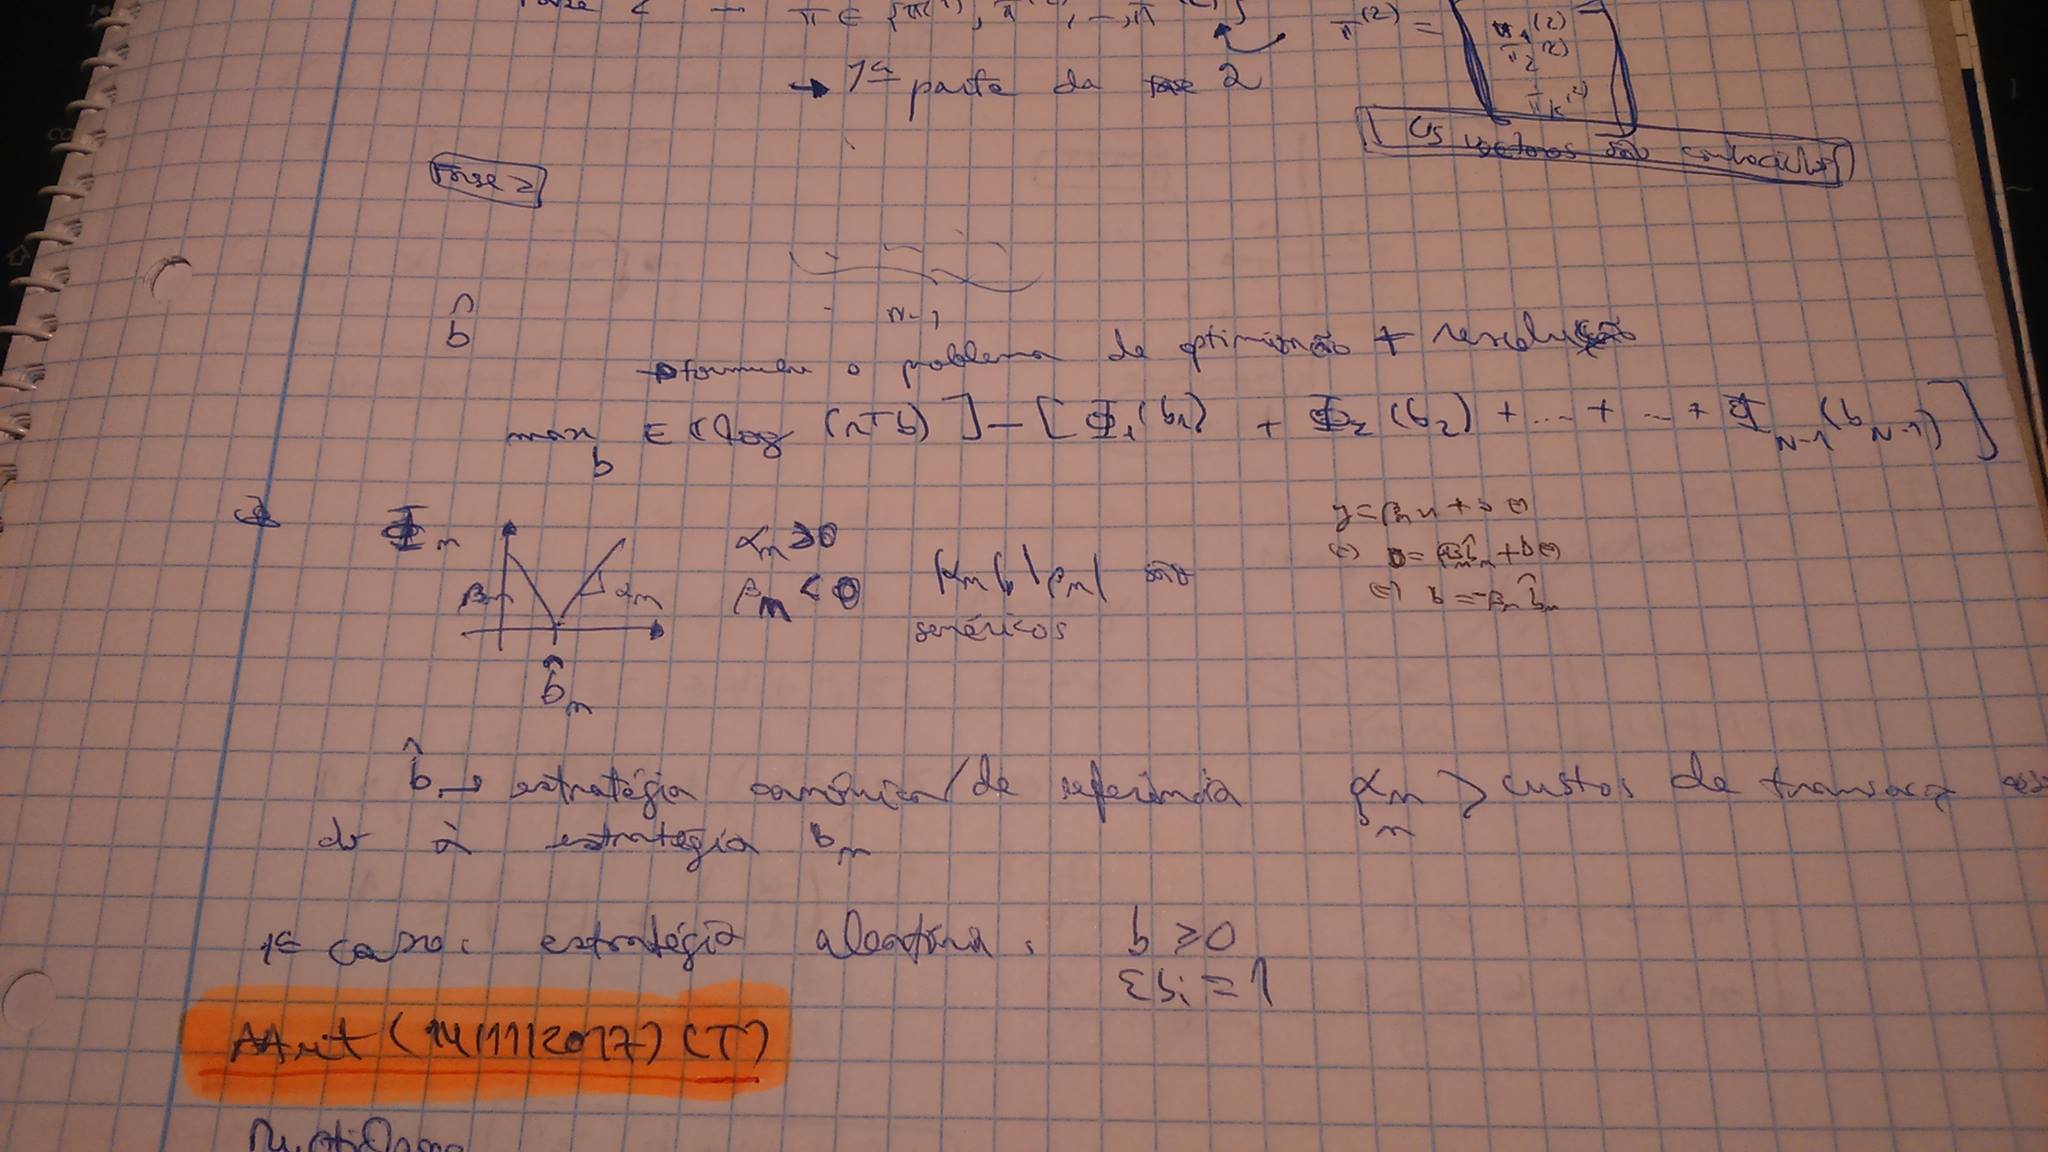 π ∈ {π⁽¹⁾, π⁽²⁾, –, π
π⁽²⁾ = [π₁⁽²⁾
π₂⁽²⁾
π_K⁽²⁾]
→ 1ª parte da fase 2
Os vectores são conhecidos
Fase 2
N-1
b̂
formular o problema de optimização + resolução
max_b E[log(rᵀb)] – [Φ₁(b₁) + Φ₂(b₂) + ... + ... + Φ_{N-1}(b_{N-1})]
Φₙ
αₙ ≥ 0
βₙ < 0
βₙ
αₙ
b̂ₙ
|αₙ| |βₙ| são
genéricos
y = βₙx + b ⇔
⇔ 0 = βₙb̂ₙ + b ⇔
⇔ b = -βₙb̂ₙ
b̂ → estratégia canónica/de referência
αₙ
βₙ > custos de transacç
do à estratégia bₙ
1º caso: estratégia aleatória: b ≥ 0
Σbᵢ = 1
AAut (14/11/2017) (T)